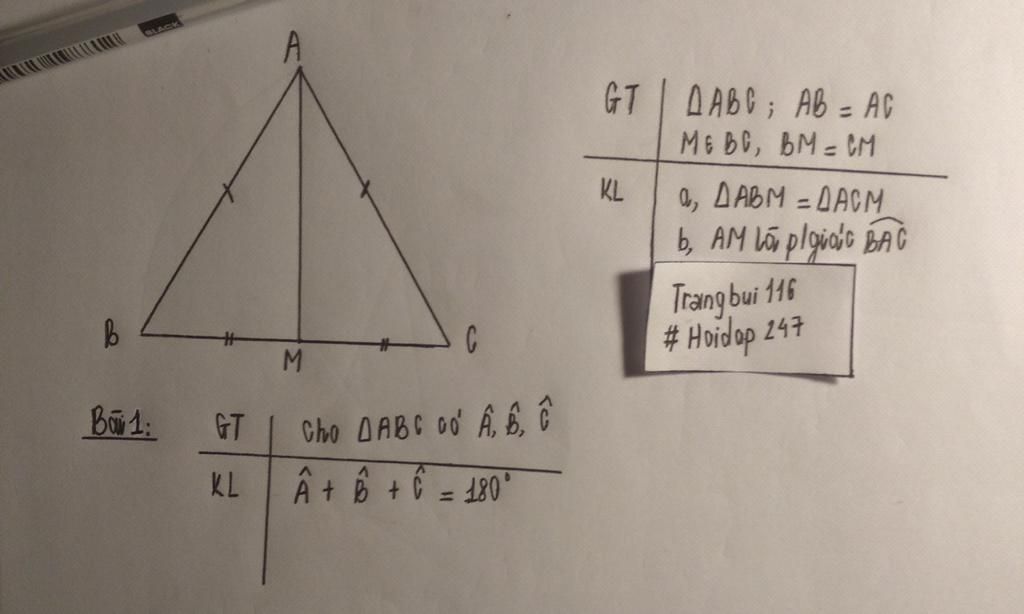 BLACK
A
B
M
C
GT ΔABC ; AB = AC
M ∈ BC, BM = CM
KL a, ΔABM = ΔACM
b, AM là p/giác B̂AC
Trangbui 116
# Hoidap 247
Bài 1:
GT cho ΔABC có Â, B̂, Ĉ
KL Â + B̂ + Ĉ = 180°